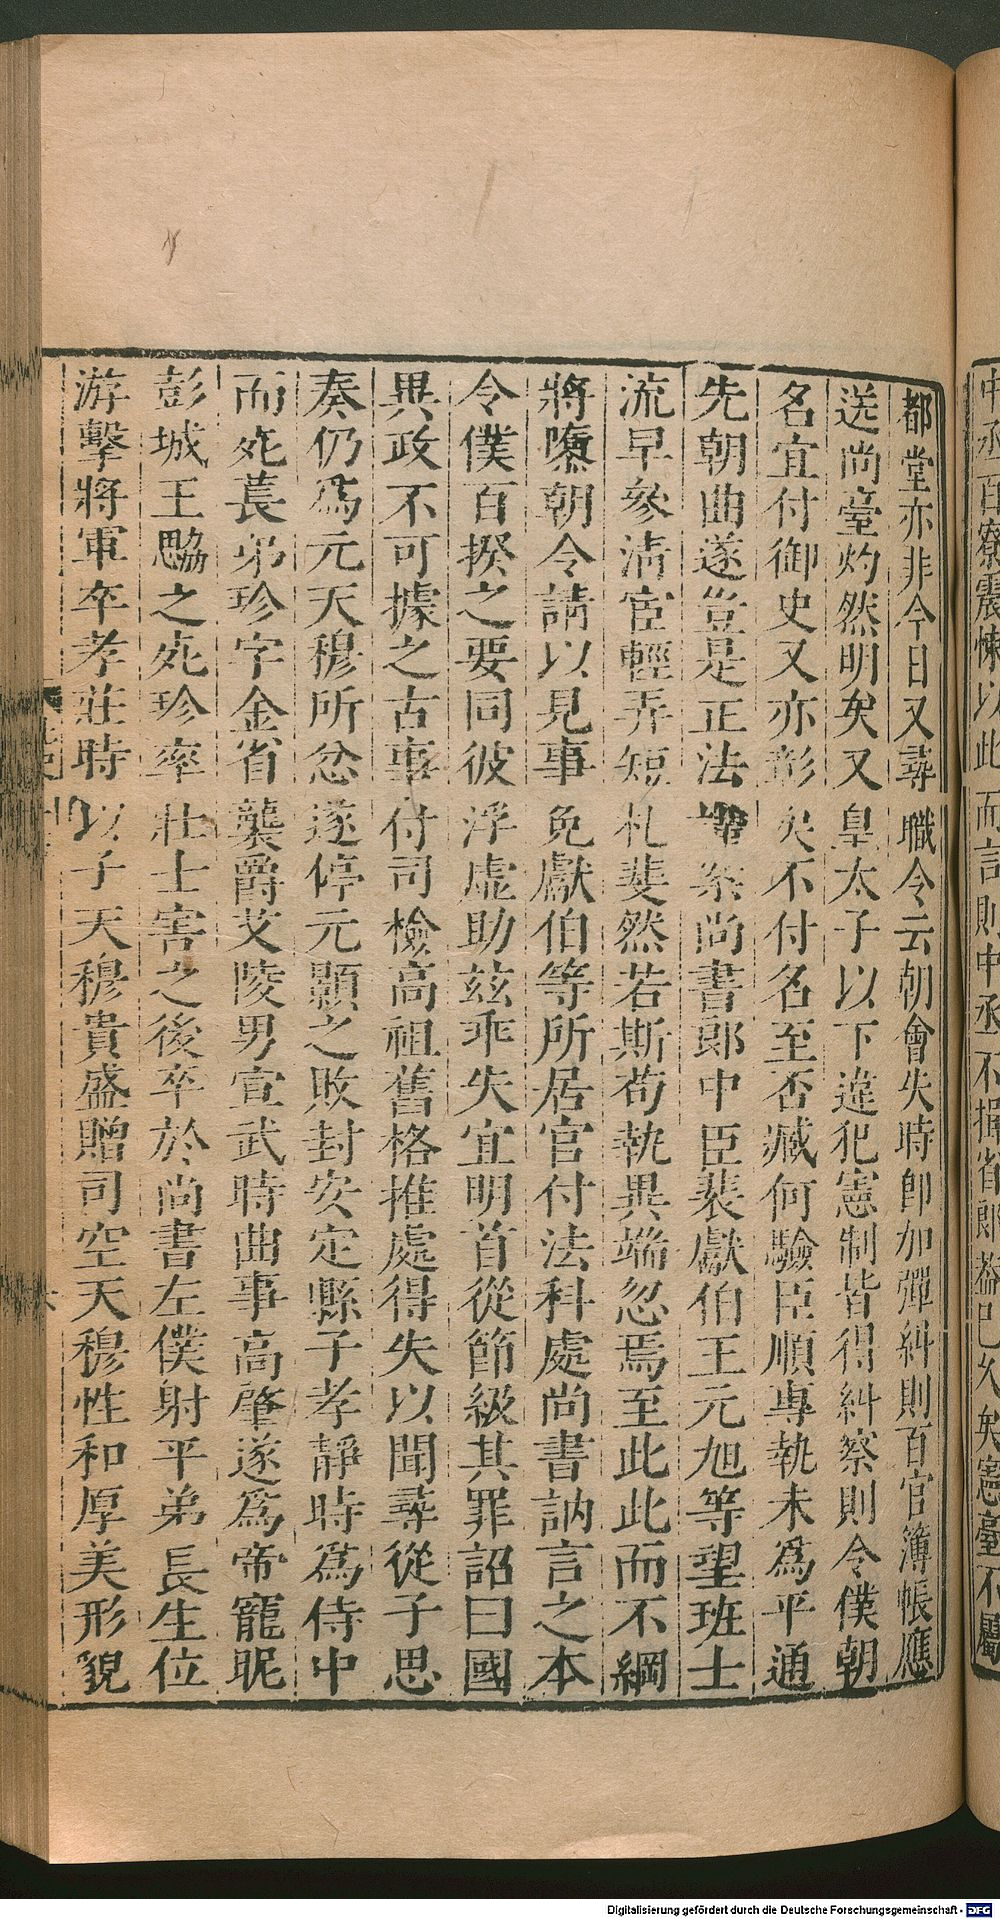 都堂亦非今日又尋職令云朝會失時卽加彈糾則百官簿帳應
送尚臺灼然明矣又皇太子以下違犯憲制皆得糾察則令僕朝
名宜付御史又亦彰矣不付名至否臧何驗臣順專執未爲平通
先朝曲遂豈是正法謹案尚書郎中臣裴獻伯王元旭等望班士
流早參清宦輕弄短札斐然若斯苟執異端忽焉至此此而不綱
將隳朝令請以見事免獻伯等所居官付法科處尚書訥言之本
令僕百揆之要同彼浮虛助茲乖失宜明首從節級其罪詔曰國
異政不可據之古事付司檢高祖舊格推處得失以聞尋從子思
奏仍爲元天穆所忿遂停元顥之敗封安定縣子孝靜時爲侍中
而死萇弟珍字金省襲爵艾陵男宣武時曲事高肇遂爲帝寵昵
彭城王勰之死珍率壯士害之後卒於尚書左僕射平弟長生位
游擊將軍卒孝莊時以子天穆貴盛贈司空天穆性和厚美形貌
中丞百寮震悚以此而言則中丞不揖省郎蓋已久矣憲臺不屬
Digitalisierung gefördert durch die Deutsche Forschungsgemeinschaft - DFG